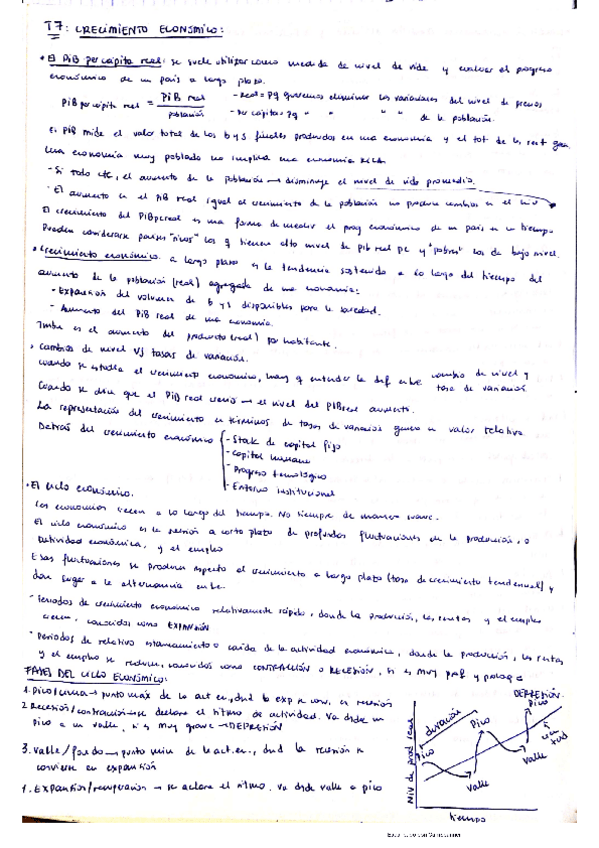 T7: CRECIMIENTO ECONÓMICO:
• El PiB per cápita real: se suele utilizar como medida de nivel de vida y evaluar el progreso
económico de un país a largo plazo.
PiB per cápita real = PiB real / población
- Real = pq queremos eliminar las variaciones del nivel de precios
- Per cápita = pq " " " " de la población.
El PIB mide el valor total de los b y s finales producidos en una economía y el tot de las rent gen.
Una economía muy poblada no implica una economía rica
- Si todo cte, el aumento de la población → disminuye el nivel de vida promedio.
- El aumento en el PiB real igual al crecimiento de la población no produce cambios en el niv
El crecimiento del PiBpcreal es una forma de medir el prog económico de un país en un tiempo
Pueden considerarse países "ricos" los q tienen alto nivel de pib real pc y "pobres" los de bajo nivel.
• Crecimiento económico: a largo plazo es la tendencia sostenida a lo largo del tiempo del
aumento de la población (real) agregada de una economía:
- Expansión del volumen de b y s disponibles para la sociedad.
- Aumento del PiB real de una economía.
Tmbn es el aumento del producto (real) por habitante.
• Cambios de nivel V/ tasas de variación.
Cuando se estudia el crecimiento económico, hay q entender la dif entre cambio de nivel y
tasa de variación.
Cuando se dice que el PiB real creció → el nivel del PIBreal aumentó.
La representación del crecimiento en términos de tasas de variación genera un valor relativo
Detrás del crecimiento económico
- Stock de capital fijo
- Capital humano
- Progreso tecnológico
- Entorno institucional
• El ciclo económico.
Las economías crecen a lo largo del tiempo. No siempre de manera suave.
El ciclo económico es la sucesión a corto plazo de profundas fluctuaciones en la producción, o
actividad económica, y el empleo
Esas fluctuaciones se producen respecto al crecimiento a largo plazo (tasa de crecimiento tendencial) y
dan lugar a la alternancia entre
- Periodos de crecimiento económico relativamente rápido, donde la producción, las rentas y el empleo
crecen, conocidos como EXPANSIÓN
- Periodos de relativo estancamiento o caída de la actividad económica, donde la producción, las rentas
y el empleo se reducen, conocidos como CONTRACCIÓN o RECESIÓN, si es muy prof y prolong
DEPRESIÓN.
FASES DEL CICLO ECONÓMICO:
1. Pico/cima → punto máx de la act ec., dnd la exp se conv. en recesión
2. Recesión/contracción → se declera el ritmo de actividad. Va desde un
pico a un valle, si es muy grave → DEPRESIÓN
3. Valle/fondo → punto mín de la act. ec., dnd la recesión se
convierte en expansión
4. Expansión/recuperación → se aclera el ritmo. Va dsde valle a pico
Niv de prod real
duración
Pico
Pico
Pico
valle
valle
tiempo